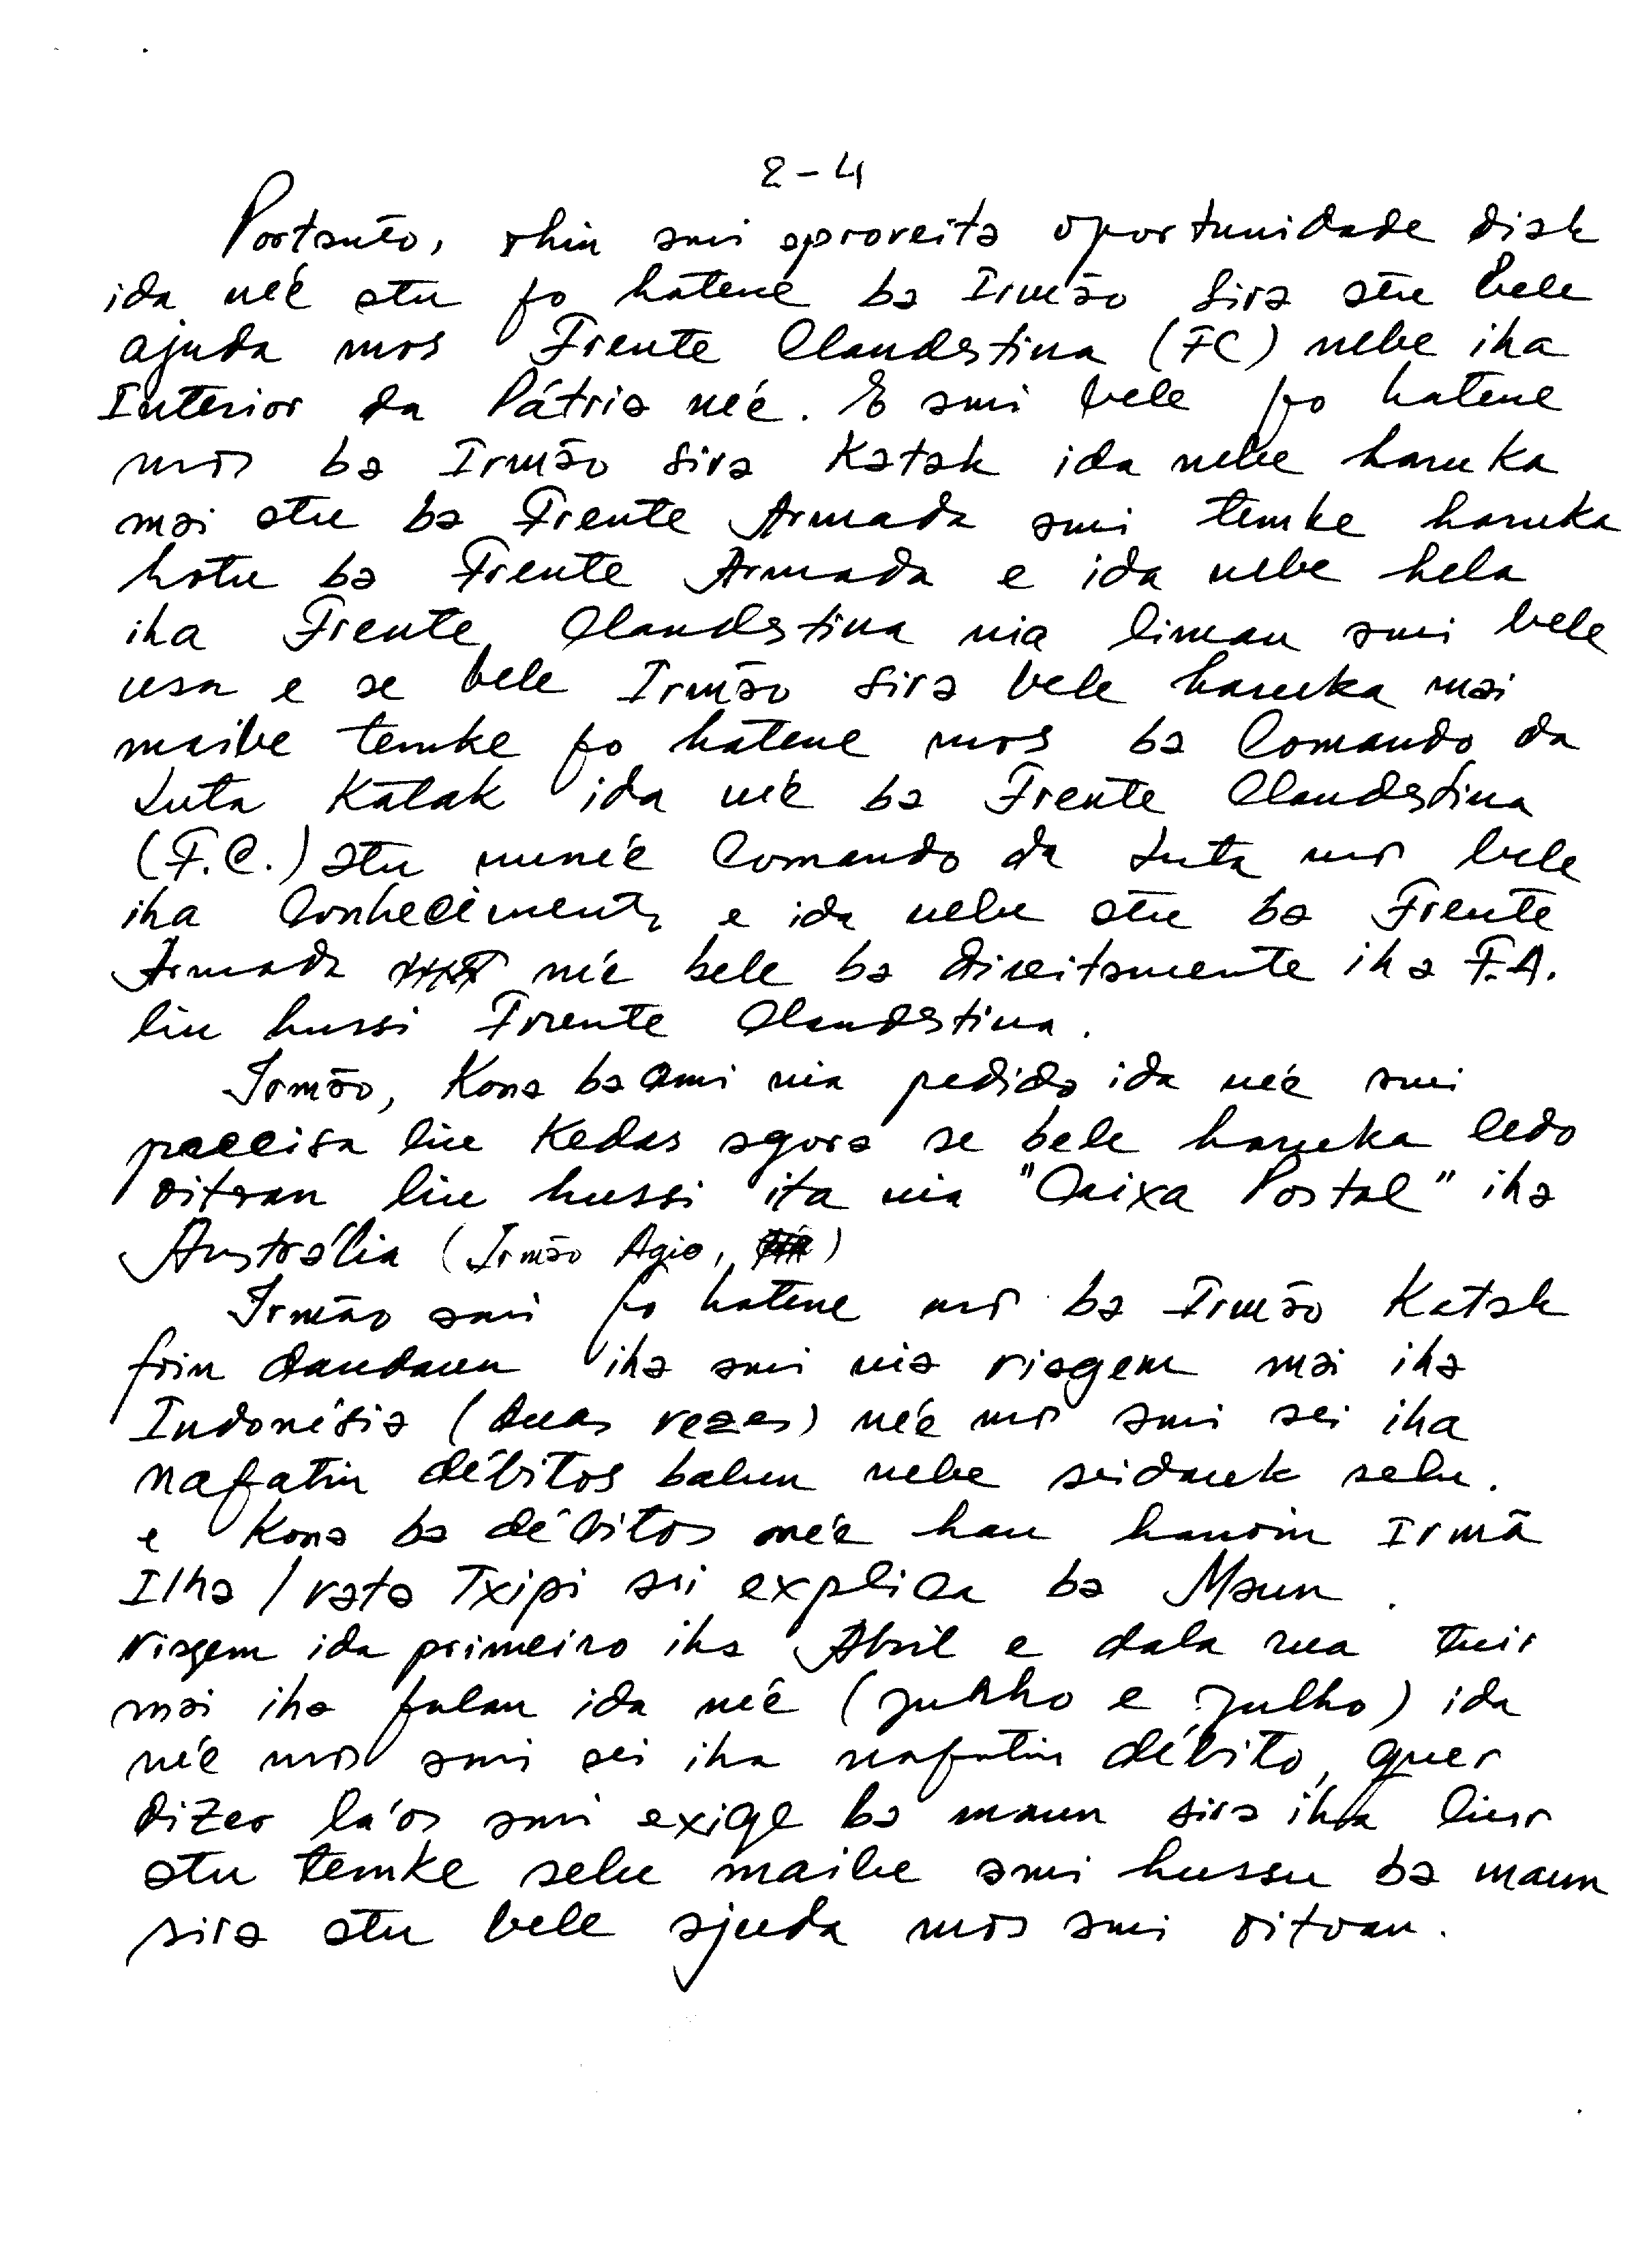 2-4
Portanto, ohin ami aproveita oportunidade diak
ida neé atu fo hatene ba Irmão sira atu bele
ajuda mos Frente Clandestina (FC) nebe iha
Interior da Pátria neé. E ami bele fo hatene
mos ba Irmão sira Katak ida nebe haruka
mai atu ba Frente Armada ami temke haruka
hotu ba Frente Armada e ida nebe hela
iha Frente Clandestina nia liman ami bele
usa e se bele Irmão sira bele haruka mai
maibe temke fo hatene mos ba Comando da
Luta Katak ida neé ba Frente Clandestina
(F.C.) atu nuneé Comando da Luta mos bele
iha Conhecimento e ida nebe atu ba Frente
Armada neé bele ba direitamente iha F.A.
liu hussi Frente Clandestina.
Irmão, Kona ba ami nia pedido ida neé ami
precisa liu Kedas agora se bele haruka ledo
oitoan liu hussi ita nia "Caixa Postal" iha
Austrália (Irmão Agio, )
Irmão ami fo hatene mos ba Irmão Katak
foin daudaun iha ami nia viagem mai iha
Indonésia (duas vezes) neé mos ami sei iha
nafatin débitos balun nebe seidauk selu.
e Kona ba débitos neé hau hanoin Irmã
Ilha / vata Txipi sei explica ba Maun.
Viagem ida primeiro iha Abril e dala rua tuir
mai iha fulan ida neé (Junho e Julho) ida
neé mos ami sei iha nafatin débito, quer
dizer la'os ami exige ba maun sira iha liur
atu temke selu maibe ami hussu ba maun
sira atu bele ajuda mos ami oitoan.